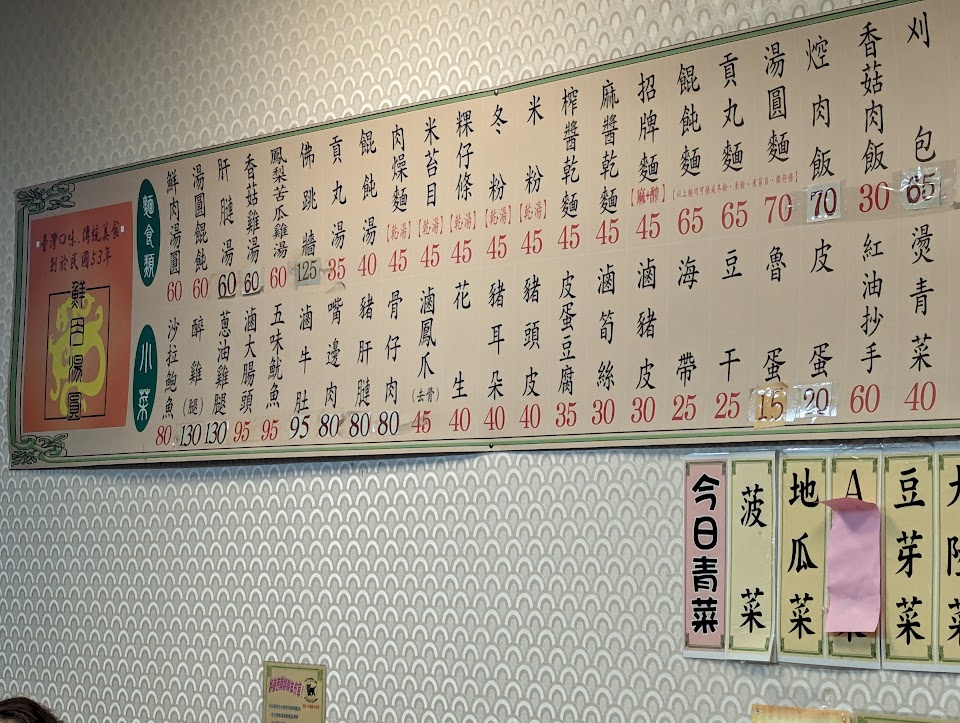 刈包 65
香菇肉飯 30
焢肉飯 70
湯圓麵 70
貢丸麵 65
餛飩麵 65
【以上麵均可換成冬粉、米粉、米苔目、粿仔條】
招牌麵【麻+醡】 45
麻醬乾麵 45
榨醬乾麵 45
米粉【乾湯】 45
冬粉【乾湯】 45
粿仔條【乾湯】 45
米苔目【乾湯】 45
肉燥麵【乾湯】 45
餛飩湯 40
貢丸湯 35
佛跳牆 125
鳳梨苦瓜雞湯 60
香菇雞湯 60
肝腱湯 60
湯圓餛飩 60
鮮肉湯圓 60
麵食類
燙青菜 40
紅油抄手 60
皮蛋 20
魯蛋 15
豆干 25
海帶 25
滷豬皮 30
滷筍絲 30
皮蛋豆腐 35
豬頭皮 40
豬耳朵 40
花生 40
滷鳳爪(去骨) 45
骨仔肉 80
豬肝腱 80
嘴邊肉 80
滷牛肚 95
五味魷魚 95
滷大腸頭 95
蔥油雞腿 130
醉雞(腿) 130
沙拉鮑魚 80
小菜
"臺灣口味、傳統美食"
創於民國53年
鮮肉湯圓
今日青菜
菠菜
地瓜菜
A
豆芽菜